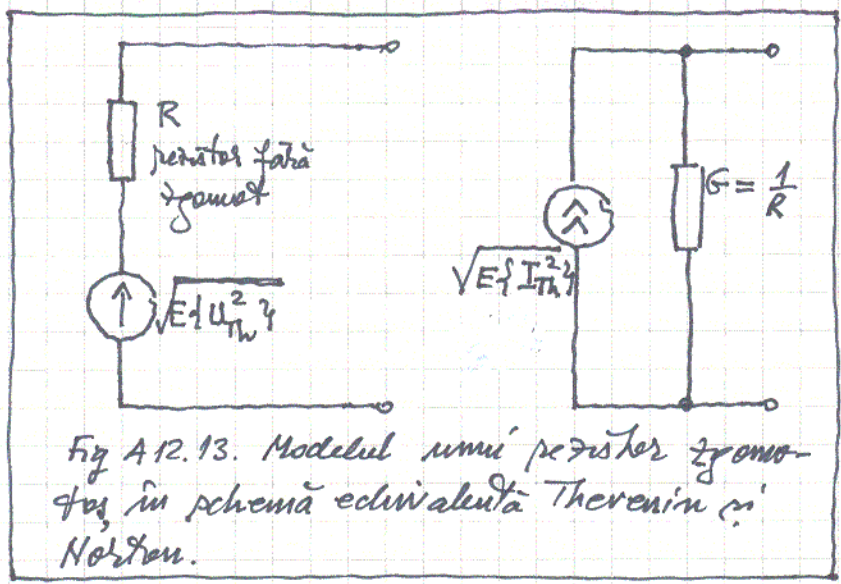 R
rezistor fără
zgomot
√E{U²Th}
√E{I²Th}
G = 1/R
Fig A12.13. Modelul unui rezistor zgomo-
tos, în schemă echivalentă Thevenin și
Norton.